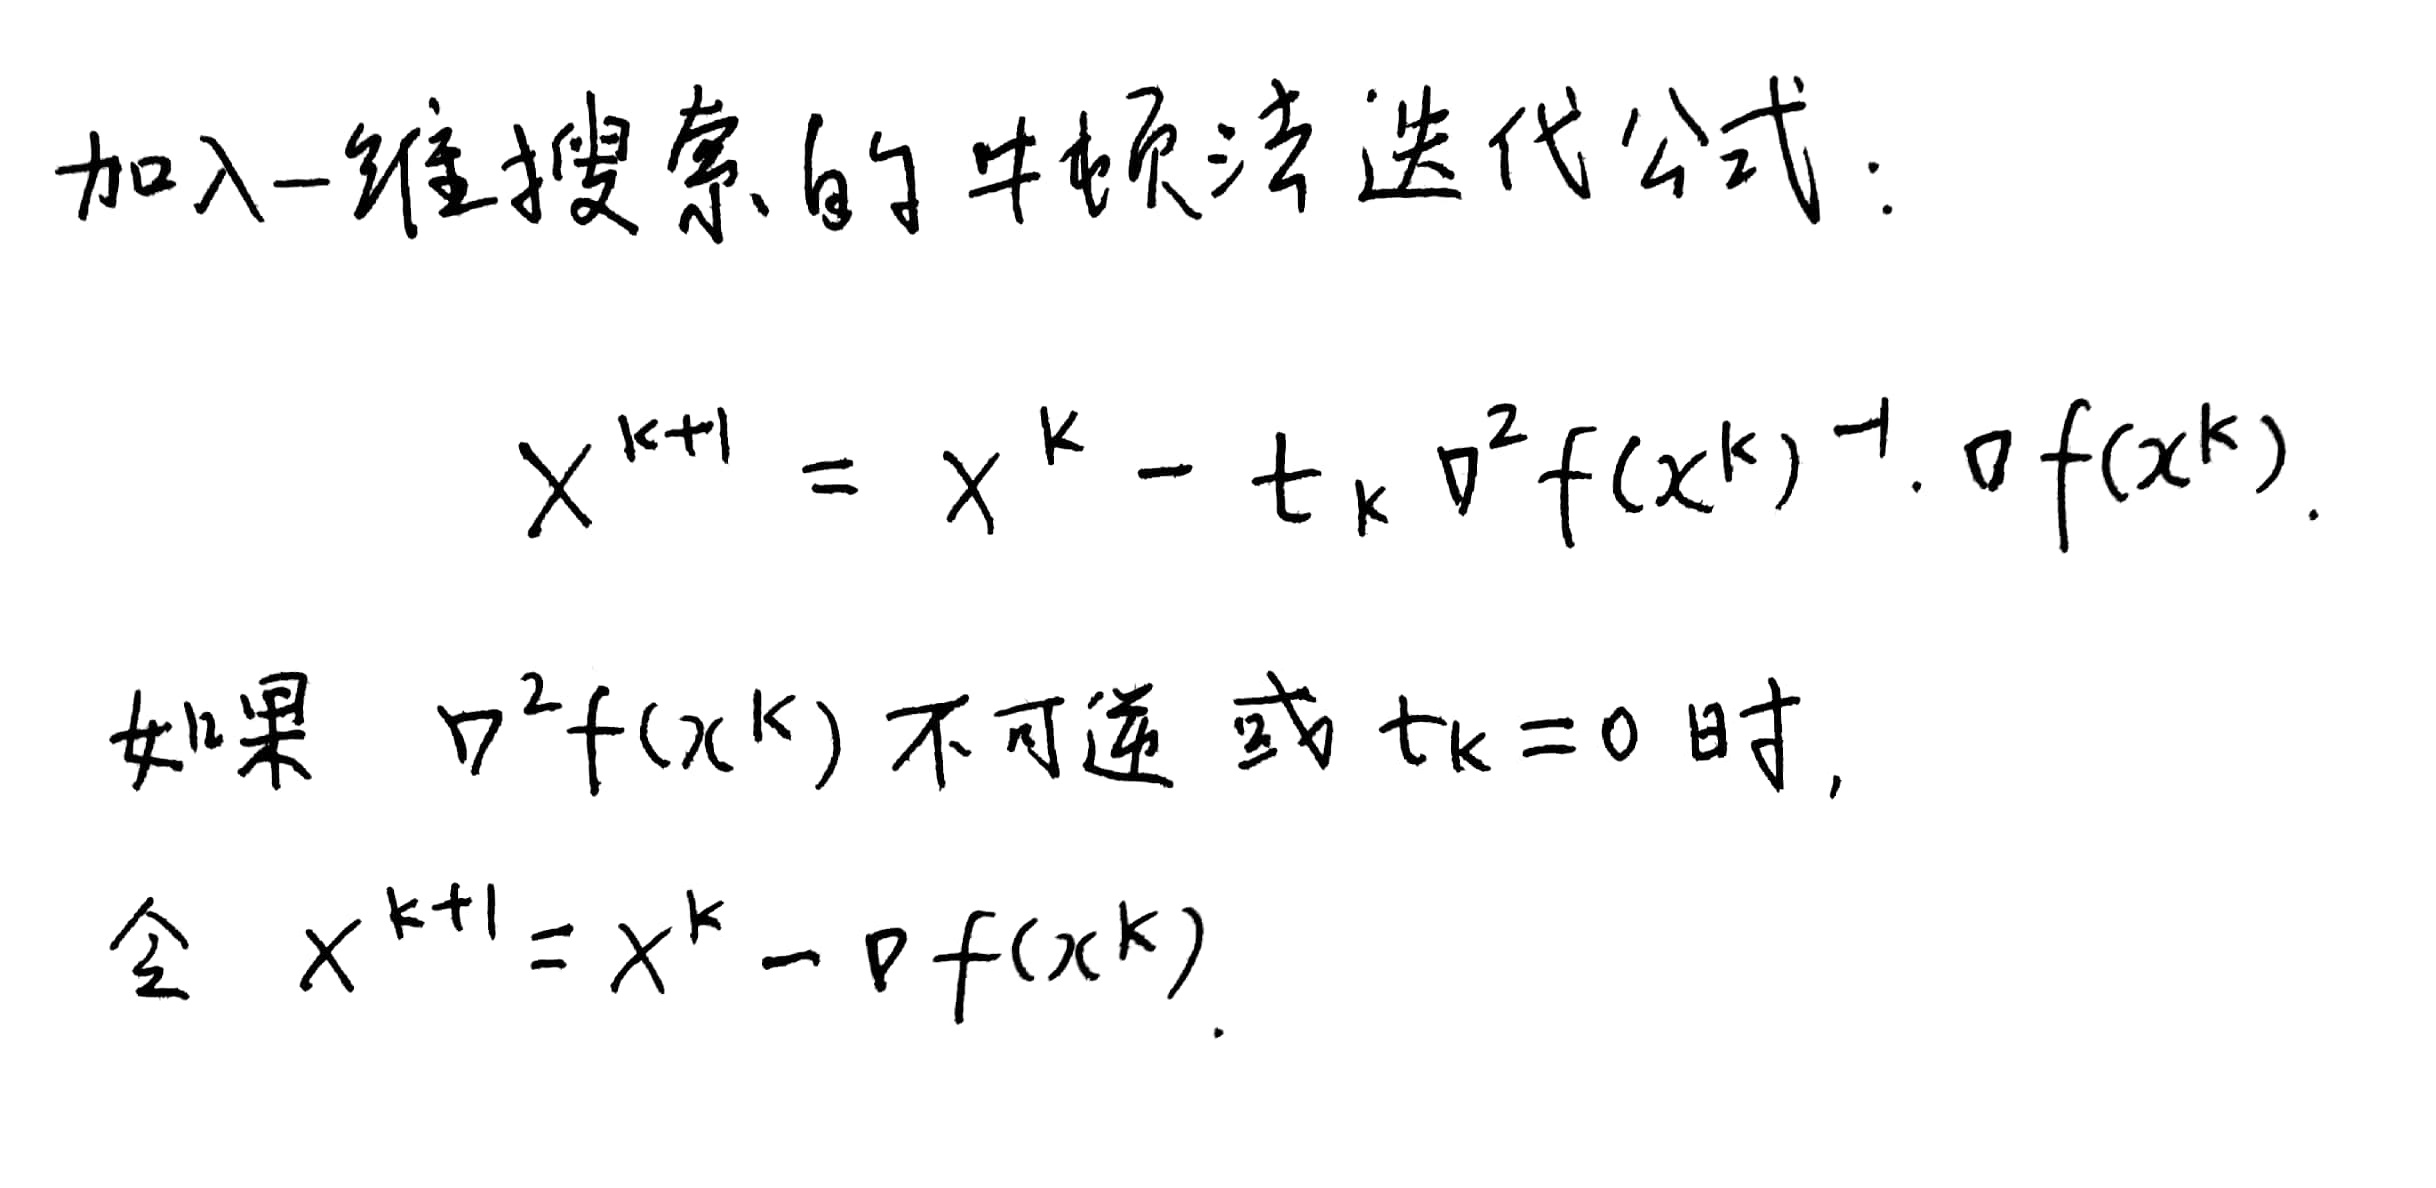 加入一维搜索的牛顿法迭代公式:
x^{k+1} = x^k - t_k ∇²f(x^k)^{-1}·∇f(x^k).
如果 ∇²f(x^k) 不可逆 或 t_k=0 时,
令 x^{k+1}=x^k-∇f(x^k).